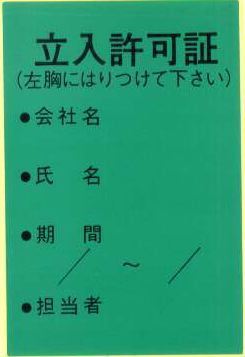 立入許可証
(左胸にはりつけて下さい)
●会社名
●氏　名
●期　間
／　～　／
●担当者